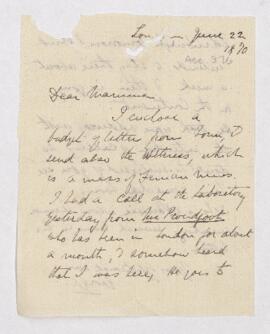 London June 22
1870
Dear Mamma
I enclose a
budget of letter from Tom. I
send also the Witness, which
is a mass of Fenian news.
I had a call at the Laboratory
yesterday from
who has been in London for about
a month, I somehow heard
that I was here, He goes to